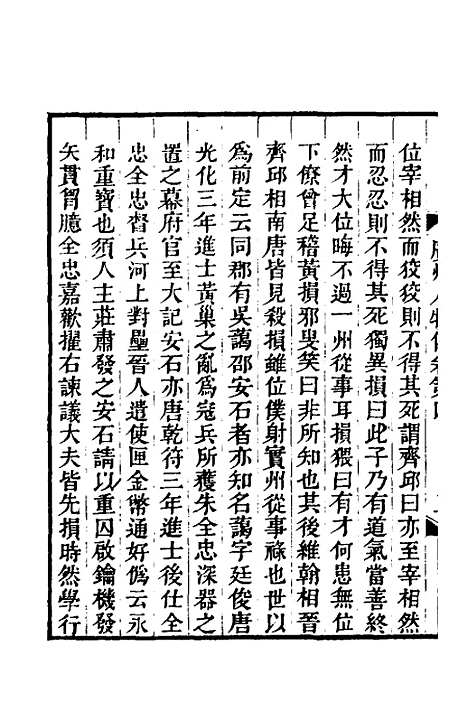 位宰相然而狡狡則不得其死謂齊邱曰亦至宰相然
而忍忍則不得其死獨異損曰此子乃有道氣當善終
然才大位晦不過一州從事耳損猥曰有才何患無位
下僚曾足稽黃損邪叟笑曰非所知也其後維翰相晉
齊邱相南唐皆見殺損雖位僕射實州從事祿也世以
爲前定云同郡有吳藹邵安石者亦知名藹字廷俊唐
光化三年進士黃巢之亂爲寇兵所獲朱全忠深器之
置之幕府官至大記安石亦唐乾符三年進士後仕全
忠全忠督兵河上對壘晉人遣使匣金幣通好僞云永
和重寶也須人主莊肅發之安石請以重囚啟鑰機發
矢貫胷臆全忠嘉歎擢右諫議大夫皆先損時然學行